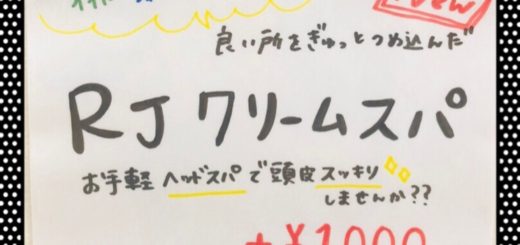 良い所をぎゅっとつめ込んだ
RJ クリームスパ
お手軽 ヘッドスパで頭皮スッキリ
しませんか??
+¥1000